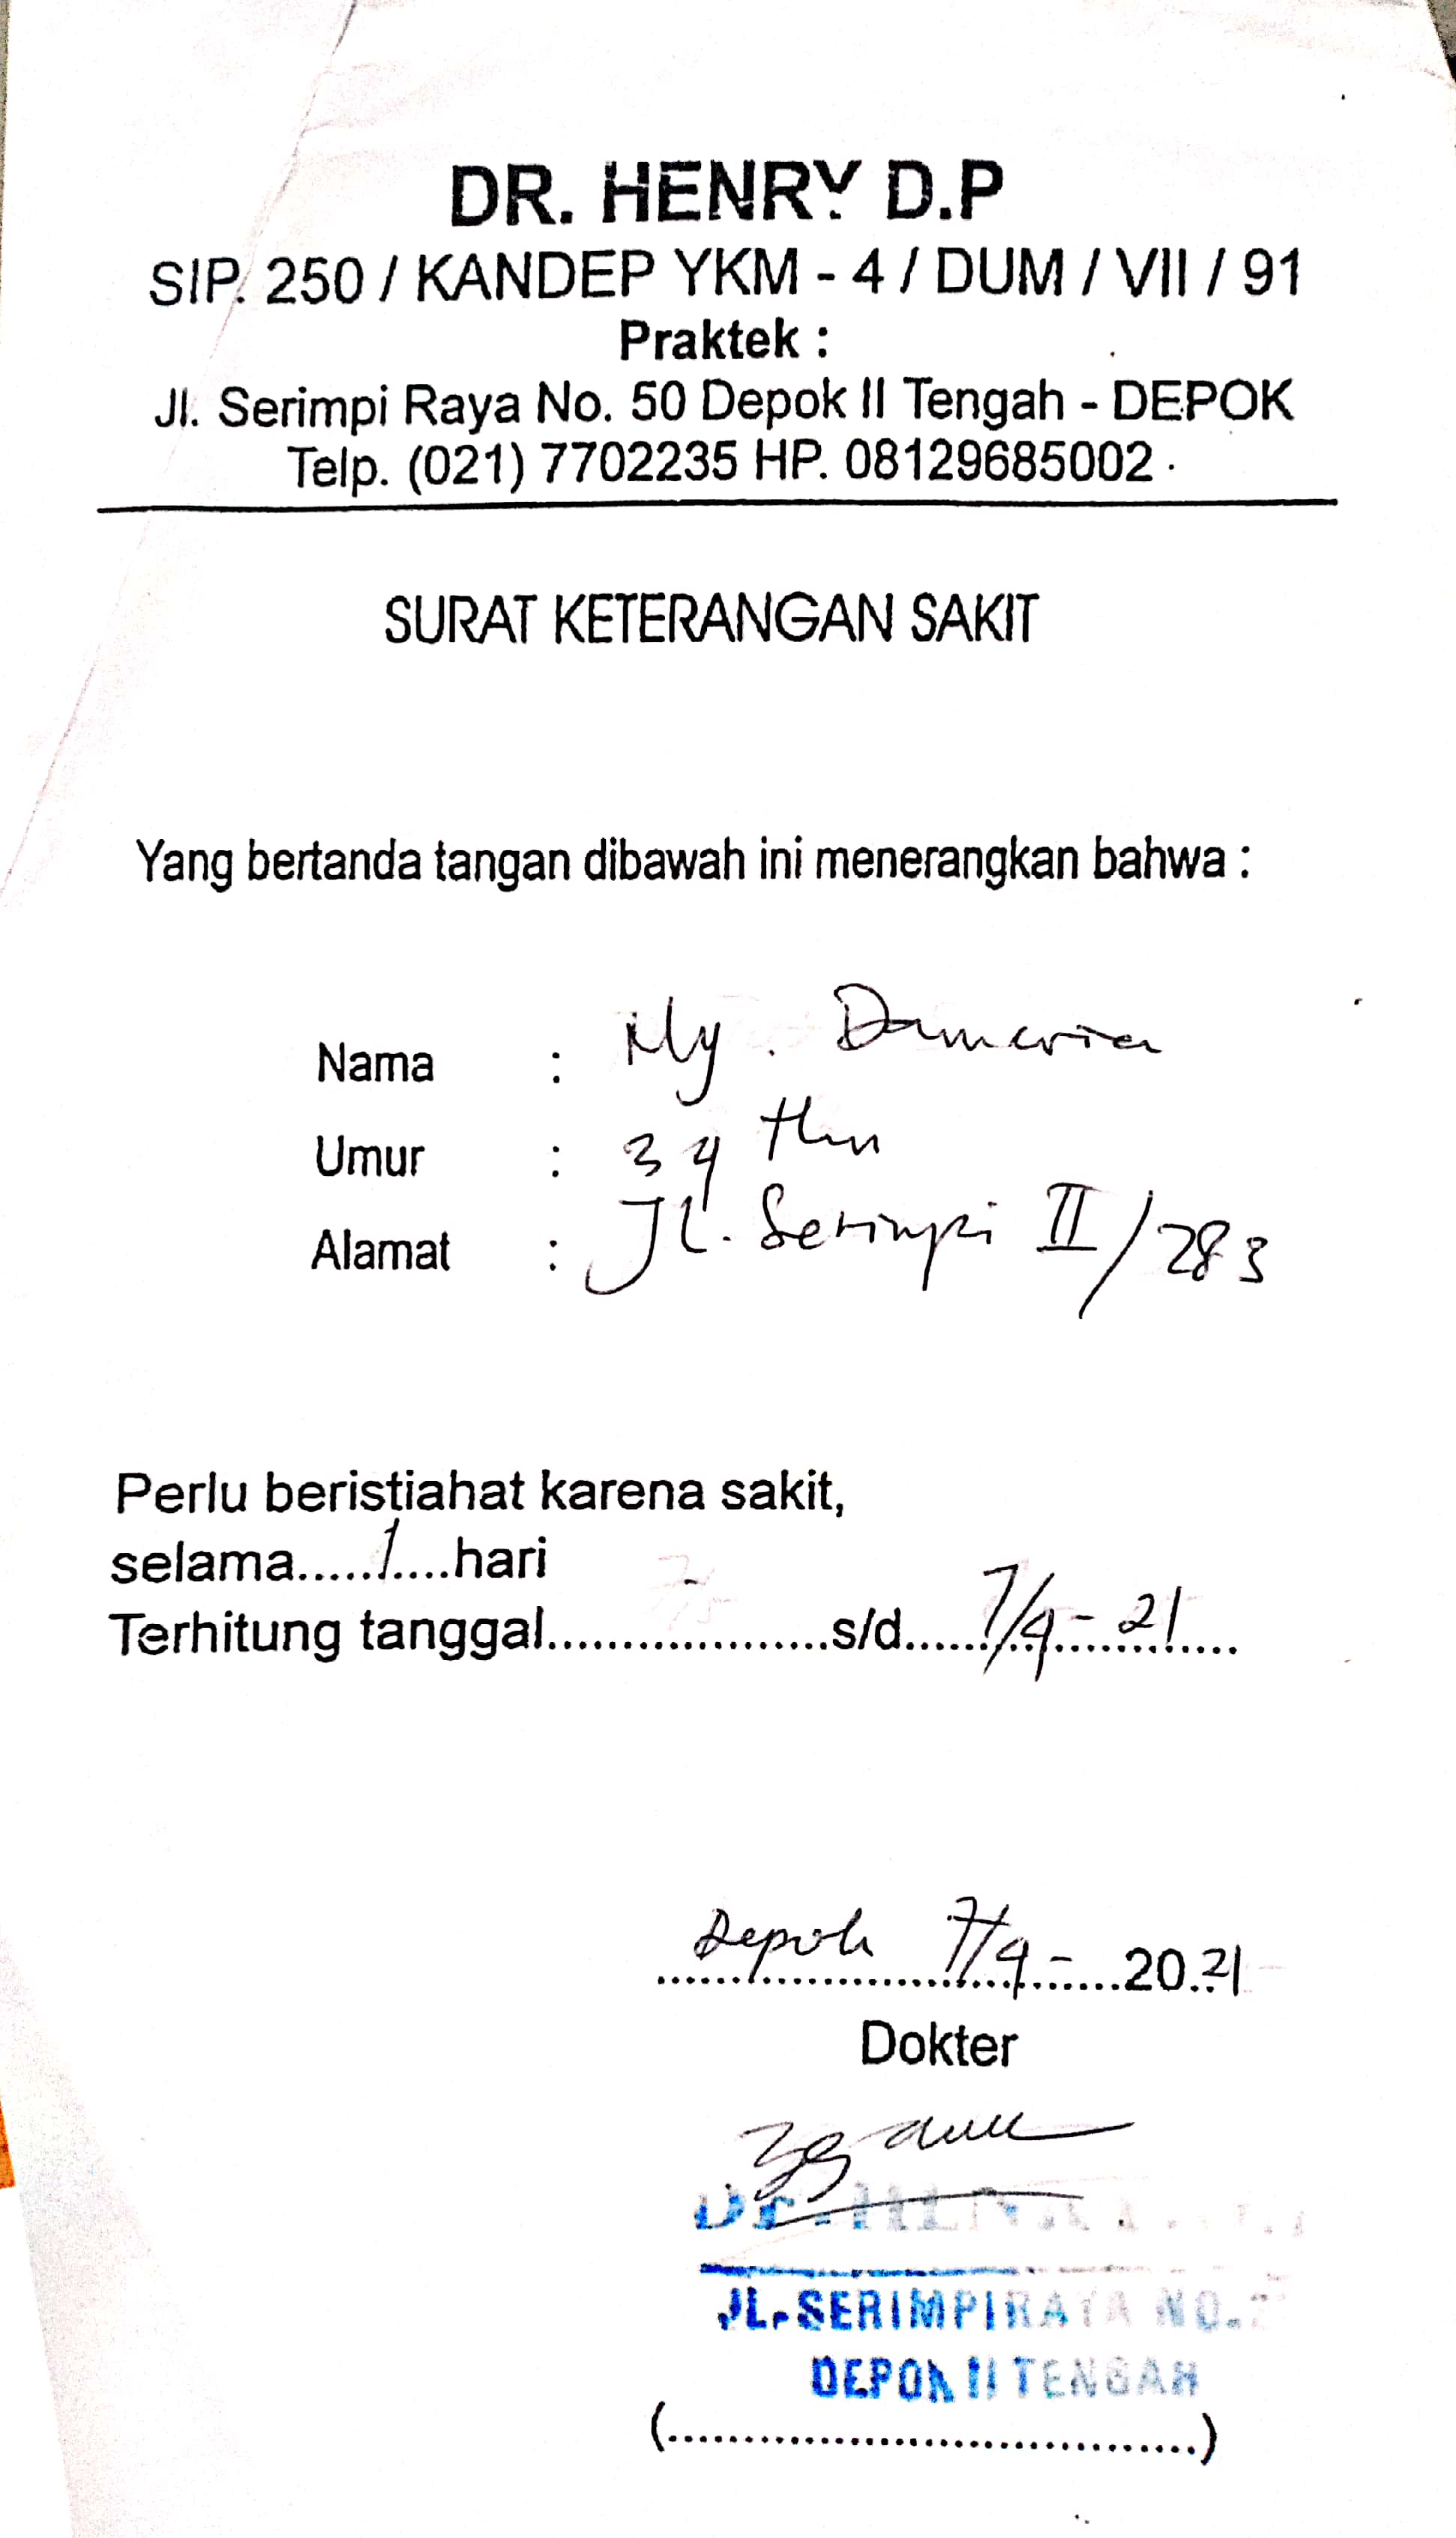 DR. HENRY D.P
SIP. 250 / KANDEP YKM - 4 / DUM / VII / 91
Praktek :
Jl. Serimpi Raya No. 50 Depok II Tengah - DEPOK
Telp. (021) 7702235 HP. 08129685002
SURAT KETERANGAN SAKIT
Yang bertanda tangan dibawah ini menerangkan bahwa :
Nama : Ny. Dameria
Umur : 39 thn
Alamat : Jl. Serimpi II/283
Perlu beristiahat karena sakit,
selama.....1....hari
Terhitung tanggal...................s/d......7/9-21....
Depok 7/9- 20.21
Dokter
JL. SERIMPI RAYA NO.
DEPOK II TENGAH
(....................................)